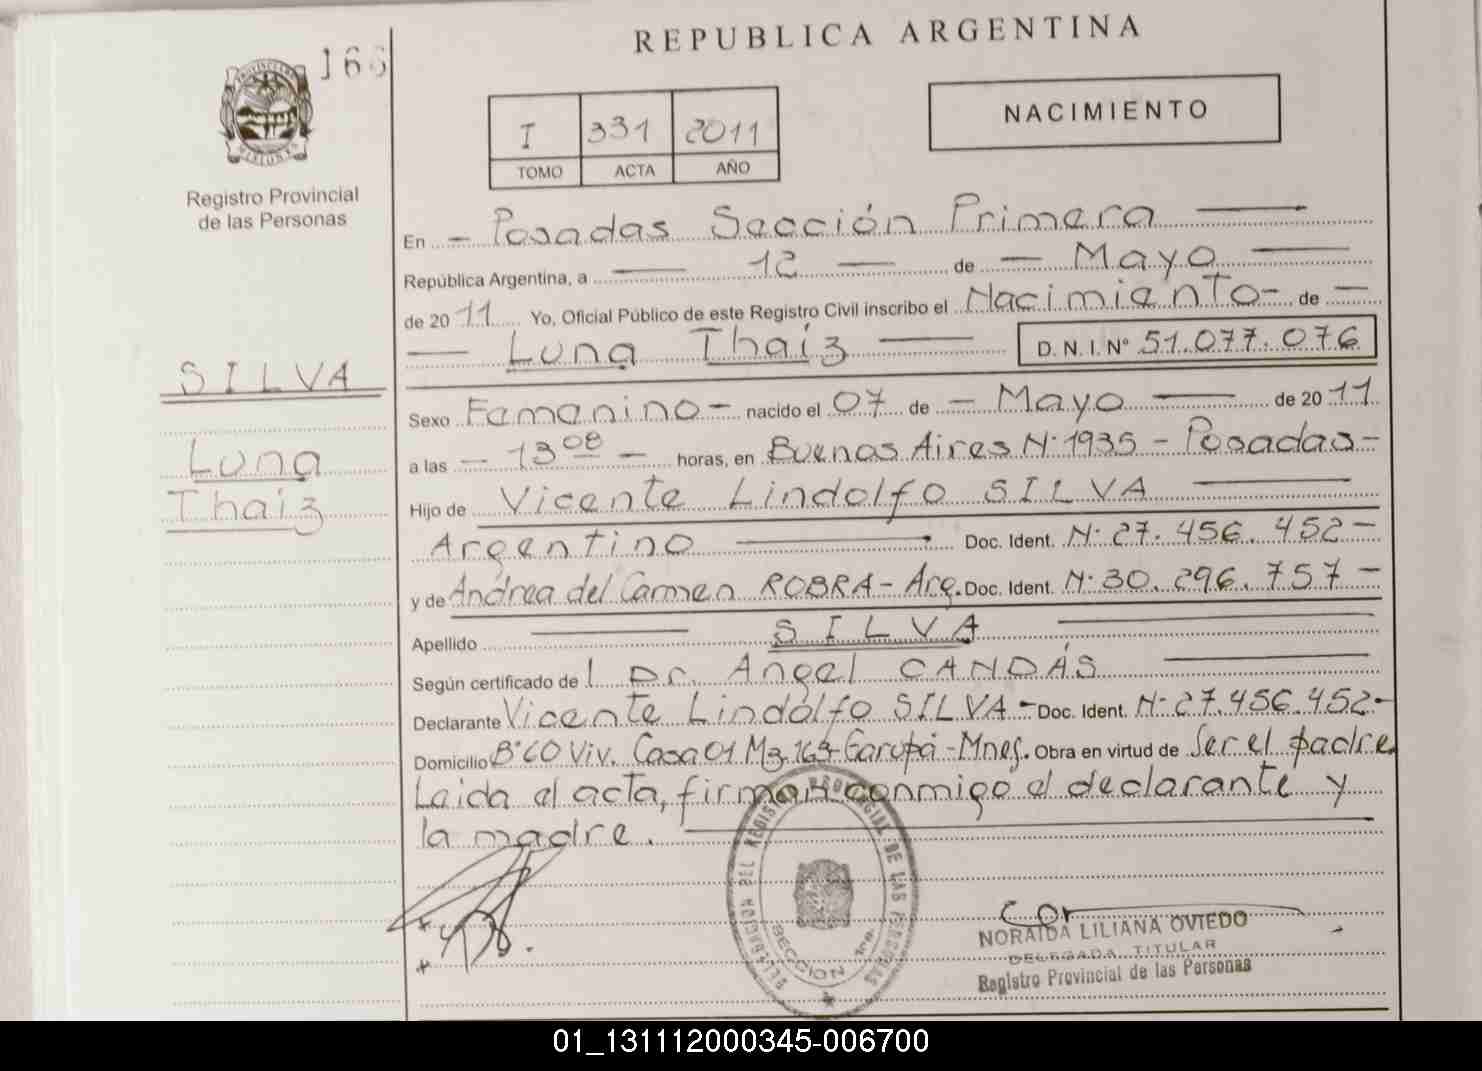 166
REPUBLICA ARGENTINA
I 331 2011
TOMO ACTA AÑO
NACIMIENTO
Registro Provincial
de las Personas
En - Posadas Sección Primera
República Argentina, a 12 de - Mayo
de 2011 Yo, Oficial Público de este Registro Civil inscribo el Nacimiento- de -
Luna Thaiz D. N. I. Nº 51.077.076
SILVA
Luna
Thaiz
Sexo Femenino - nacido el 07 de - Mayo de 2011
a las - 13 08 - horas, en Buenos Aires Nº 1935 - Posadas -
Hijo de Vicente Lindolfo SILVA
Argentino Doc. Ident. Nº 27.456.452 -
y de Andrea del Carmen ROBRA - Arg. Doc. Ident. Nº 30.296.757 -
Apellido SILVA
Según certificado de Dr. Angel CANDÁS
Declarante Vicente Lindolfo SILVA - Doc. Ident. Nº 27.456.452 -
Domicilio Bº 60 Viv. Casa 01 Mz. 163 - Garupá - Mnes. Obra en virtud de Ser el padre
Leida el acta, firman conmigo el declarante y
la madre.
DELEGACION DEL REGISTRO PROVINCIAL DE LAS PERSONAS
SECCION 1ra.
NORAIDA LILIANA OVIEDO
DELEGADA TITULAR
Registro Provincial de las Personas
01_131112000345-006700